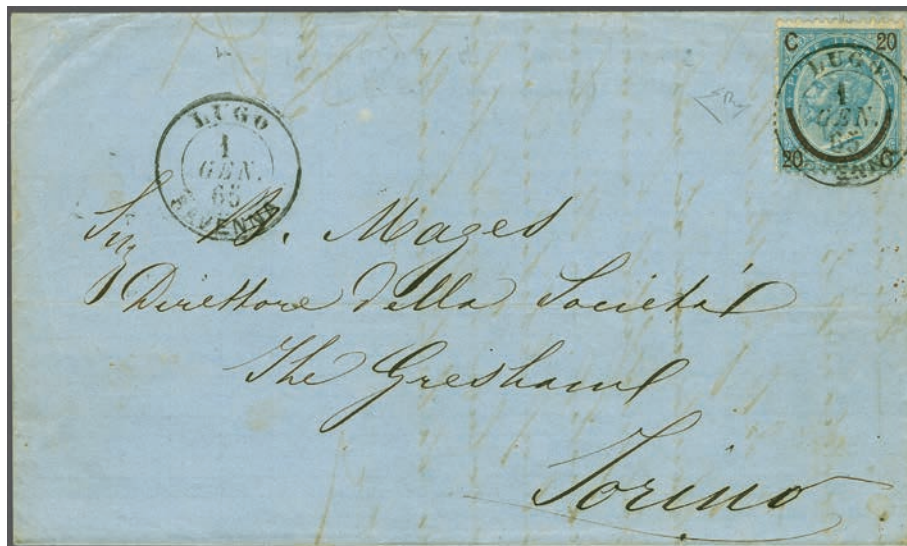 C 20
LUGO
1
GEN.
65
20 C
LUGO
1
GEN.
65
RAVENNA
Sig B. Mages
Direttore della Società
The Gresham
Torino